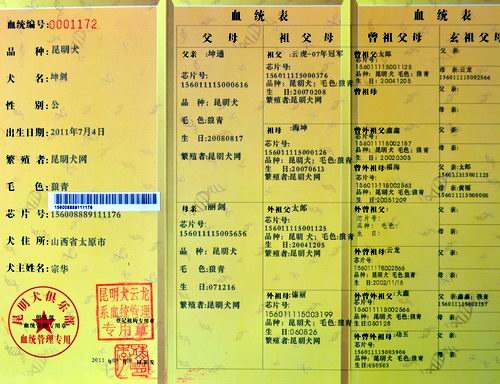 血统编号:0001172
品 种: 昆明犬
犬 名: 坤剑
性 别: 公
出生日期:2011年7月4日
繁 殖 者: 昆明犬网
毛 色: 狼青
156008889111176
芯 片 号:156008889111176
犬 住 所:山西省太原市
犬主姓名:宗华
昆明犬俱乐部
血统管理专用
昆明犬云龙
系血统管理
专用章
2011
血统表
父母
父亲:坤通
芯片号:
1560111115000616
品 种:昆明犬
毛 色:狼青
生 日:20080817
繁殖者:昆明犬网
母亲:丽剑
芯片号:
1560111115005656
品 种:昆明犬
毛 色:狼青
生 日:071216
繁殖者:昆明犬网
祖父母
祖父:云虎-07年冠军
芯片号:
156011115000376
品种:昆明犬 毛色:狼青
生 日:20070208
繁殖者:昆明犬网
祖母:海坤
芯片号:
156011115000126
品种:昆明犬 毛色:狼青
生 日:20070613
繁殖者:昆明犬网
外祖父:太郎
芯片号:
156011115000125
品种:昆明犬 毛色:狼青
生 日:20041205
繁殖者:昆明犬网
芯片号:
1560111115003199
品种:昆明犬 毛色:狼青
生 日:060826
繁殖者:昆明犬网
血统表
曾祖父母
曾祖父:太郎
芯片号:
156011115000125
品种:昆明犬 毛色:狼青
生 日:20041205
曾祖母:
曾外祖父:鑫鑫
芯片号:
品种:昆明犬 毛色:狼青
生 日:20020305
曾外祖母:福海
芯片号:
品种:昆明犬 毛色:狼青
生 日:20051209
外曾祖父:
芯片号:
品种:
生 日:
外曾祖母:云龙
芯片号:
品种:昆明犬 毛色:狼青
生 日:2002/11/15
外曾外祖父:大鑫
芯片号:
品种:昆明犬 毛色:狼青
生 日:050128
外曾外祖母:
芯片号:
品种:昆明犬 毛色:狼青
生 日:050503
玄祖父母
父亲:
母亲:云龙
父亲:
母亲:
父亲:
母亲:
父亲:太郎
母亲:黄福
父亲:
母亲:
父亲:
母亲:
父亲:
母亲:鑫鑫
父亲:
母亲: